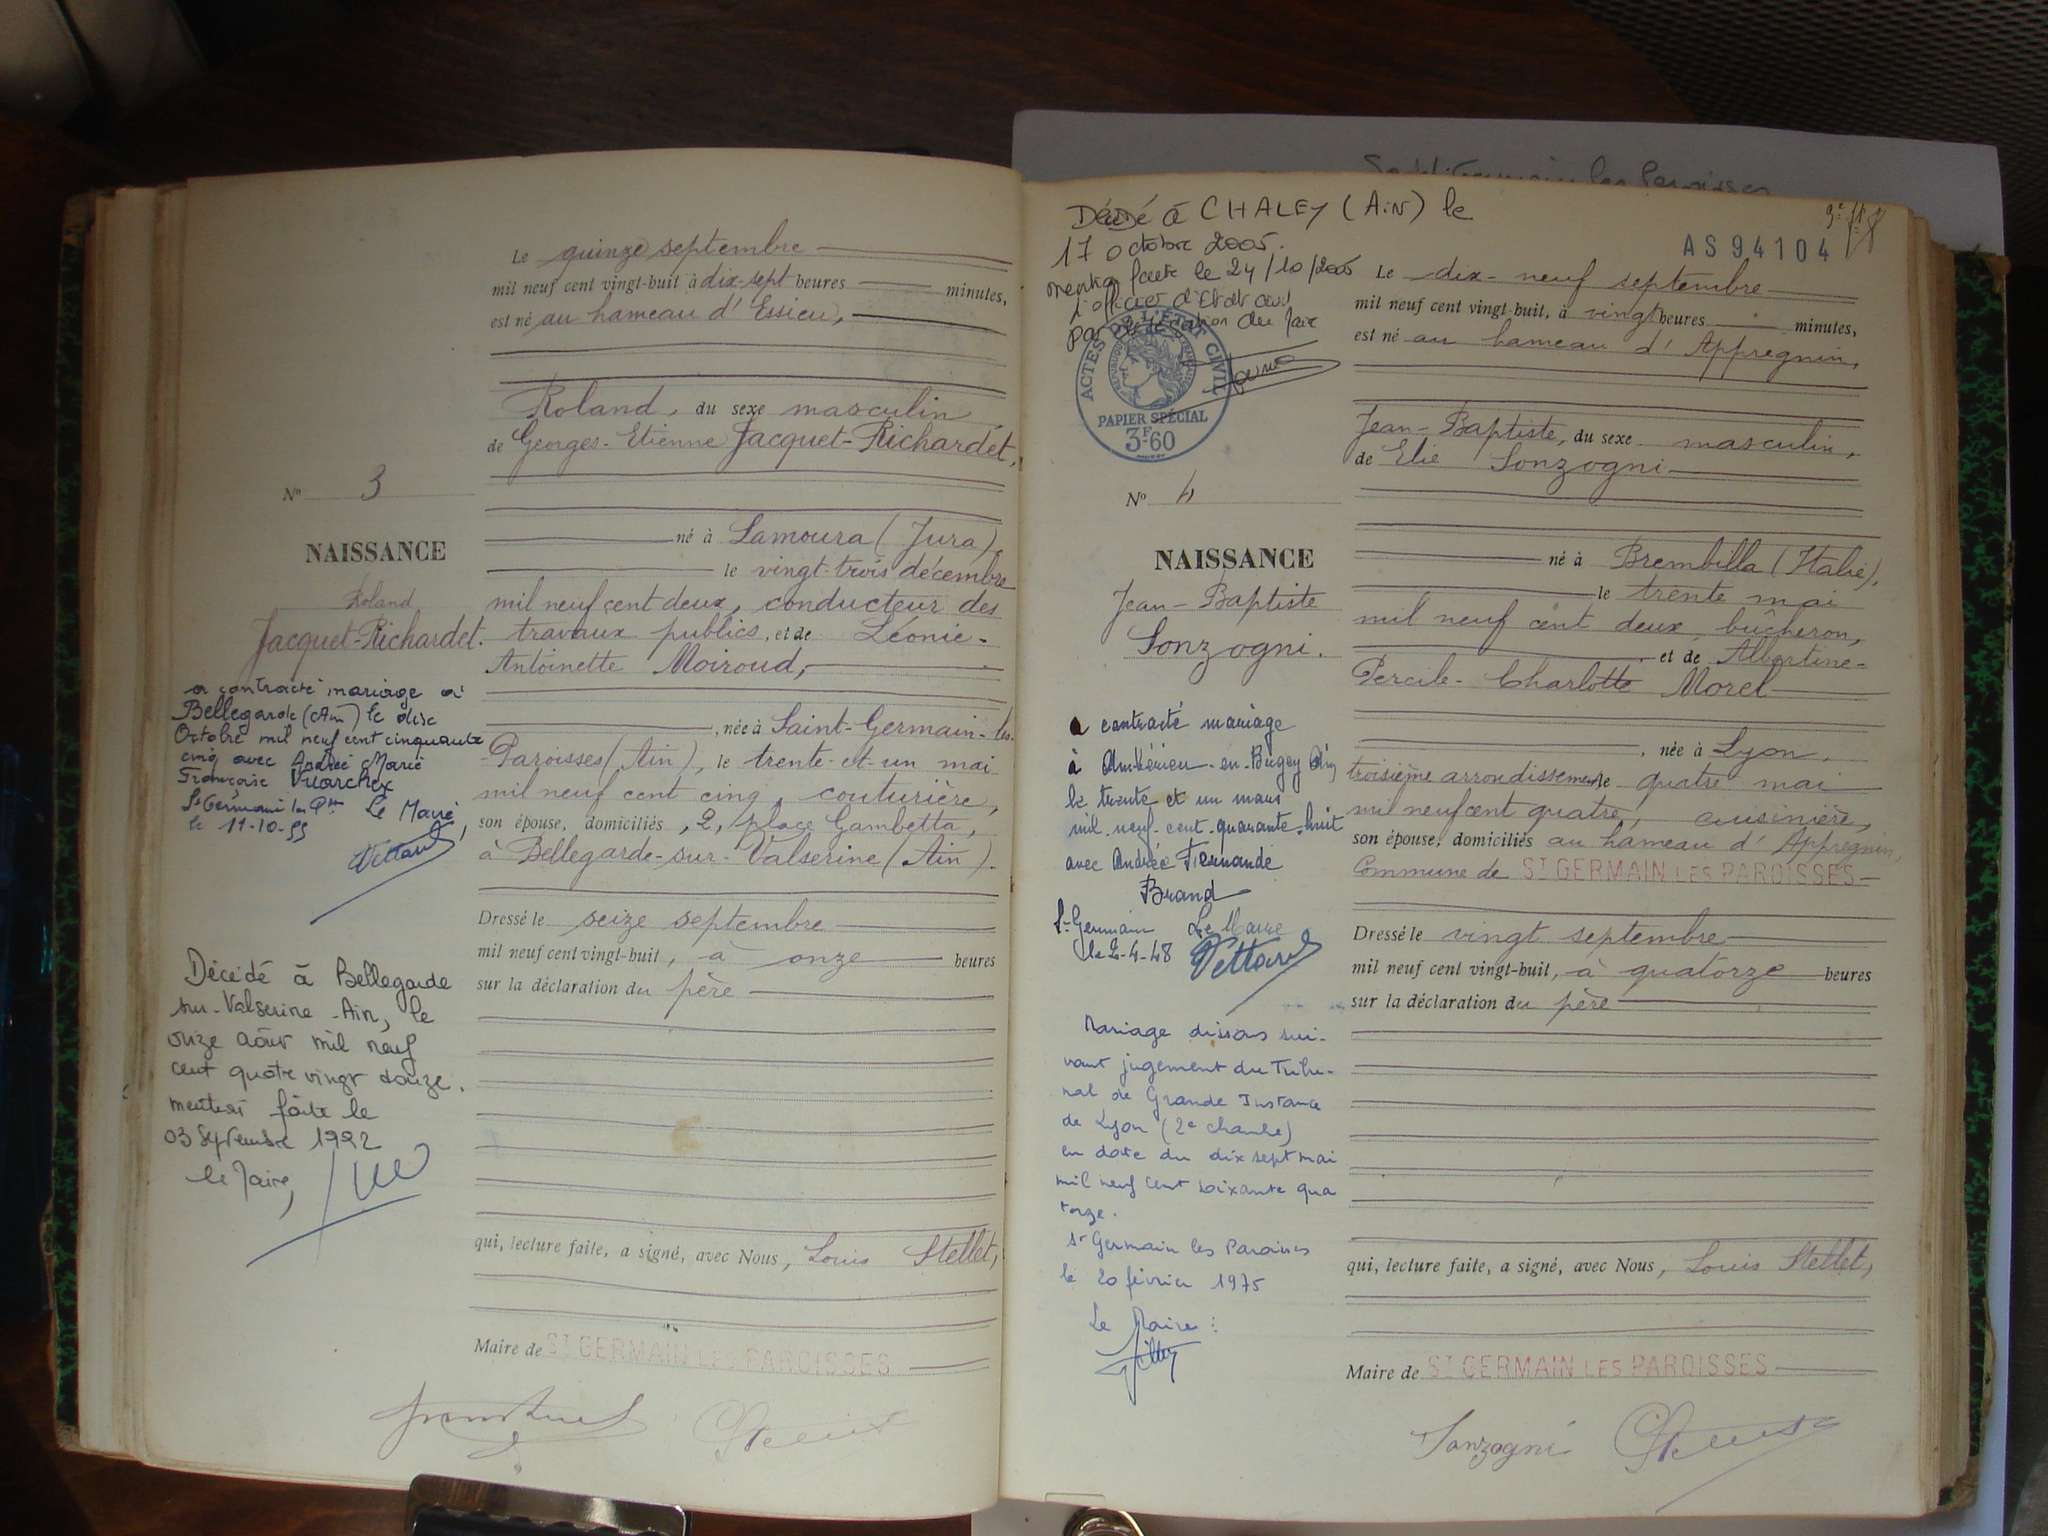 Le quinze septembre
mil neuf cent vingt-huit à dix-sept heures minutes,
est né au hameau d'Essieu,
Roland, du sexe masculin
de Georges-Etienne Jacquet-Richardet,
N° 3
NAISSANCE
Roland
Jacquet-Richardet.
a contracté mariage à
Bellegarde (Ain) le dix
Octobre mil neuf cent cinquante
cinq avec Andrée Marie
Françoise Vuarchex
St Germain les Pses Le Maire,
le 11-10-55
Vettard
Décédé à Bellegarde
sur-Valserine-Ain, le
onze août mil neuf
cent quatre vingt douze.
mention faite le
03 Septembre 1992
le Maire,
né à Lamoura (Jura),
le vingt-trois décembre
mil neuf cent deux, conducteur des
travaux publics, et de Léonie-
Antoinette Moiroud,
, née à Saint-Germain-les-
-Paroisses (Ain), le trente-et-un mai
mil neuf cent cinq, couturière,
son épouse, domiciliés, 2, place Gambetta,
à Bellegarde-sur-Valserine (Ain).
Dressé le seize septembre
mil neuf cent vingt-huit, à onze heures
sur la déclaration du père
qui, lecture faite, a signé, avec Nous, Louis Stellet,
Maire de ST GERMAIN LES PAROISSES
DéCéDé à CHALEY (AiN) le
17 octobre 2005.
mention faite le 24/10/2005
l'officier d'Etat civil
par délégation du Maire
ACTES DE L'ETAT CIVIL
PAPIER SPÉCIAL
3F60
AS 94104
Le dix-neuf septembre
mil neuf cent vingt-huit, à vingt heures minutes,
est né au hameau d'Appregnin,
Jean-Baptiste, du sexe masculin,
de Elie Sonzogni
N° 4
NAISSANCE
Jean-Baptiste
Sonzogni.
a contracté mariage
à Ambérieu-en-Bugey Ain
le trente et un mars
mil-neuf-cent-quarante-huit
avec Andrée Fernande
Brand
St Germain Le Maire
le 2-4-48 Vettard
Mariage dissous sui-
vant jugement du Tribu-
nal de Grande Instance
de Lyon (2e chambre)
en date du dix sept mai
mil neuf cent soixante qua
torze.
St Germain les Paroisses
le 20 février 1975
Le Maire :
né à Brembilla (Italie),
le trente mai
mil neuf cent deux, bûcheron,
et de Albertine-
Percile-Charlotte Morel
, née à Lyon,
troisième arrondissement, le quatre mai
mil neuf cent quatre, cuisinière,
son épouse, domiciliés au hameau d'Appregnin,
Commune de ST GERMAIN LES PAROISSES
Dressé le vingt septembre
mil neuf cent vingt-huit, à quatorze heures
sur la déclaration du père
qui, lecture faite, a signé, avec Nous, Louis Stellet,
Maire de ST GERMAIN LES PAROISSES
Sonzogni